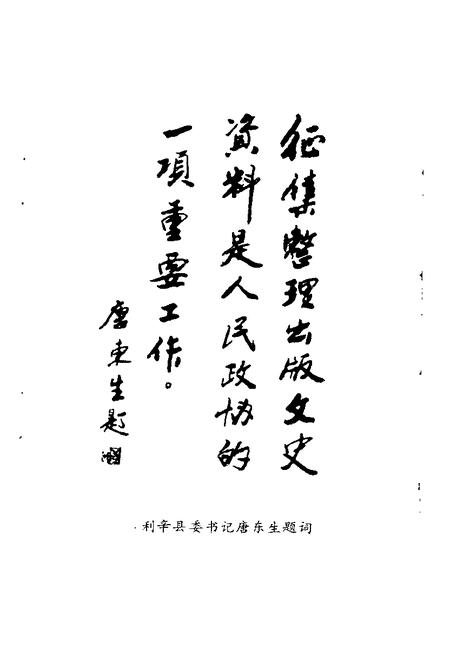 征集整理出版文史
資料是人民政协的
一項重要工作。
唐東生題
利辛县委书记唐东生题词